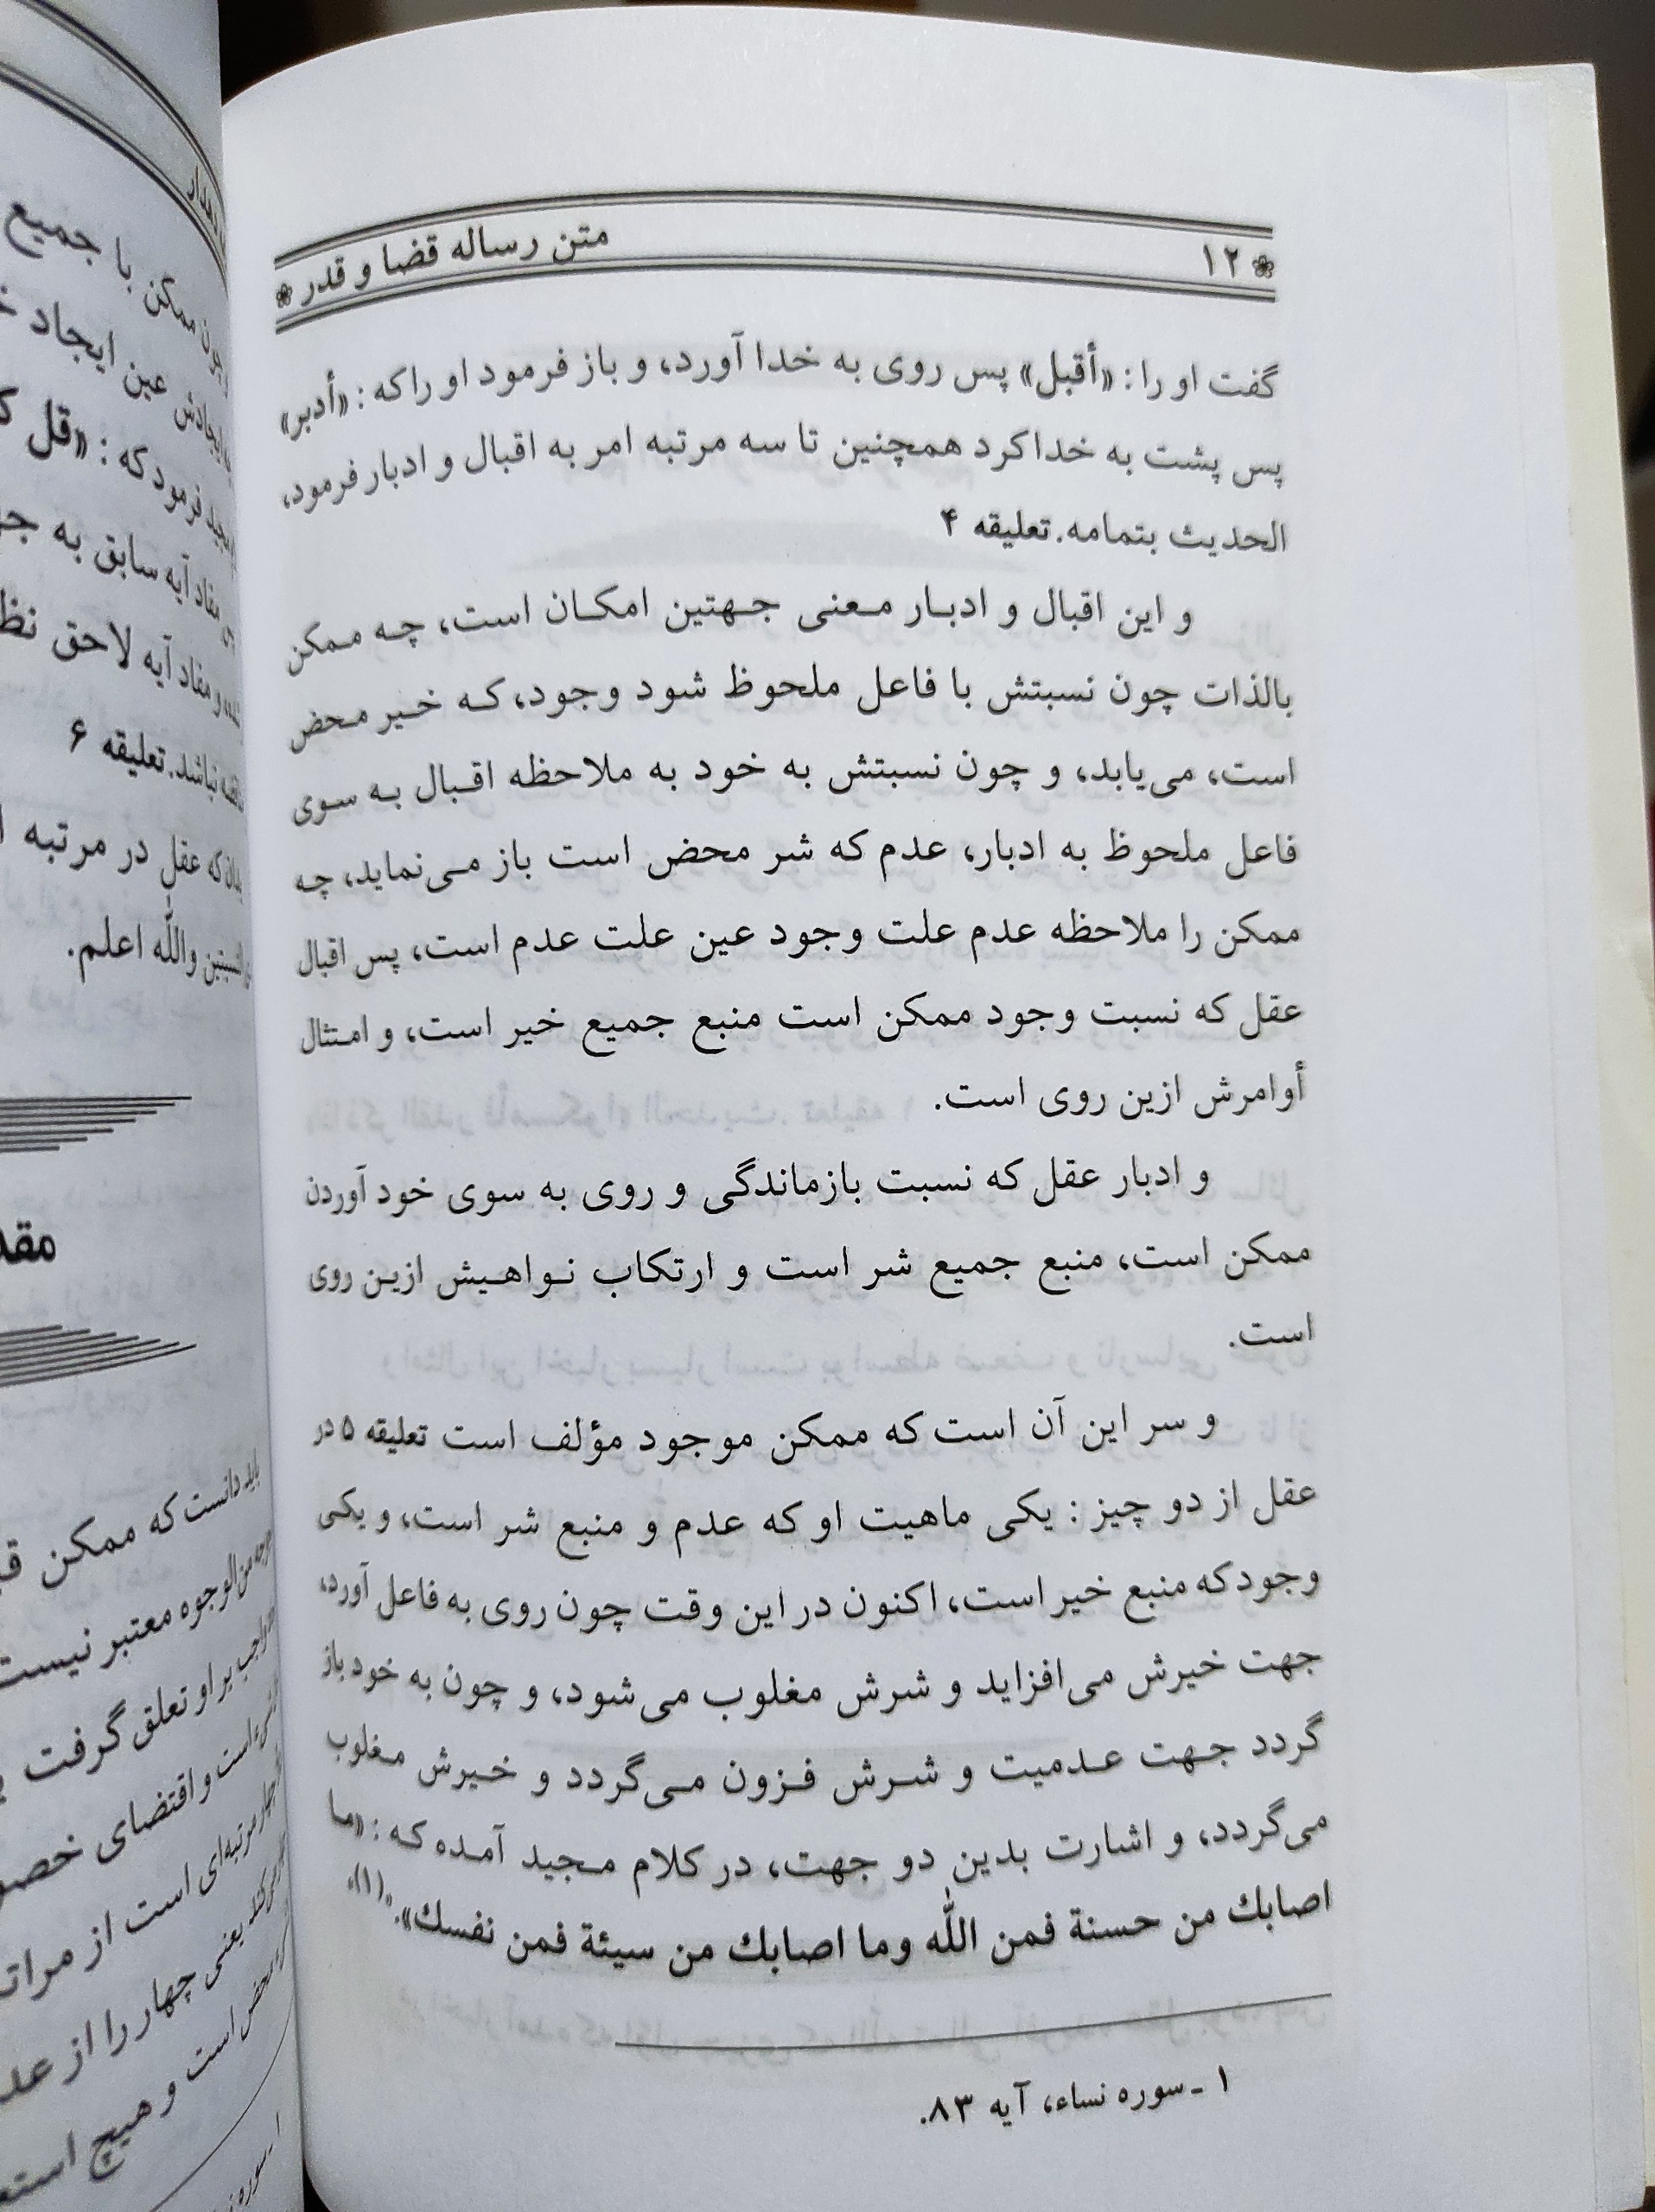 ۱۲ متن رساله قضا و قدر
گفت او را : «أقبل» پس روی به خدا آورد، و باز فرمود او را که : «أدبر»
پس پشت به خدا کرد همچنین تا سه مرتبه امر به اقبال و ادبار فرمود،
الحدیث بتمامه. تعلیقه ۴
و این اقبال و ادبار معنی جهتین امکان است، چه ممکن
بالذات چون نسبتش با فاعل ملحوظ شود وجود، که خیر محض
است، می‌یابد، و چون نسبتش به خود به ملاحظه اقبال به سوی
فاعل ملحوظ به ادبار، عدم که شر محض است باز می‌نماید، چه
ممکن را ملاحظه عدم علت وجود عین علت عدم است، پس اقبال
عقل که نسبت وجود ممکن است منبع جمیع خیر است، و امتثال
أوامرش ازین روی است.
و ادبار عقل که نسبت بازماندگی و روی به سوی خود آوردن
ممکن است، منبع جمیع شر است و ارتکاب نواهیش ازین روی
است.
و سر این آن است که ممکن موجود مؤلف است تعلیقه ۵ در
عقل از دو چیز : یکی ماهیت او که عدم و منبع شر است، و یکی
وجود که منبع خیر است، اکنون در این وقت چون روی به فاعل آورد،
جهت خیرش می‌افزاید و شرش مغلوب می‌شود، و چون به خود باز
گردد جهت عدمیت و شرش فزون می‌گردد و خیرش مغلوب
می‌گردد، و اشارت بدین دو جهت، در کلام مجید آمده که : «ما
اصابك من حسنة فمن الله وما اصابك من سیئة فمن نفسك».(۱)
۱ ـ سوره نساء، آیه ۸۳.
با جمیع
چون ممکن
عین ایجاد
فرمود که : «قل
مفاد آیه سابق به
و مفاد آیه لاحق
نباشد. تعلیقه ۶
که عقل در مرتبه
والله اعلم.
باید دانست که ممکن
من الوجوه معتبر نیست
بر او تعلق گرفت
است و اقتضای
مرتبه‌ای است از
یعنی چهار را از
محض است و هیچ